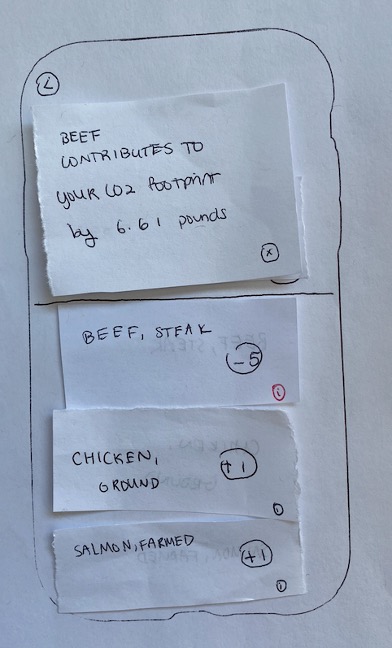 <
BEEF
CONTRIBUTES TO
your CO2 footprint
by 6.61 pounds
x
BEEF, STEAK
-5
i
CHICKEN,
GROUND
+1
i
SALMON, FARMED
+1
i